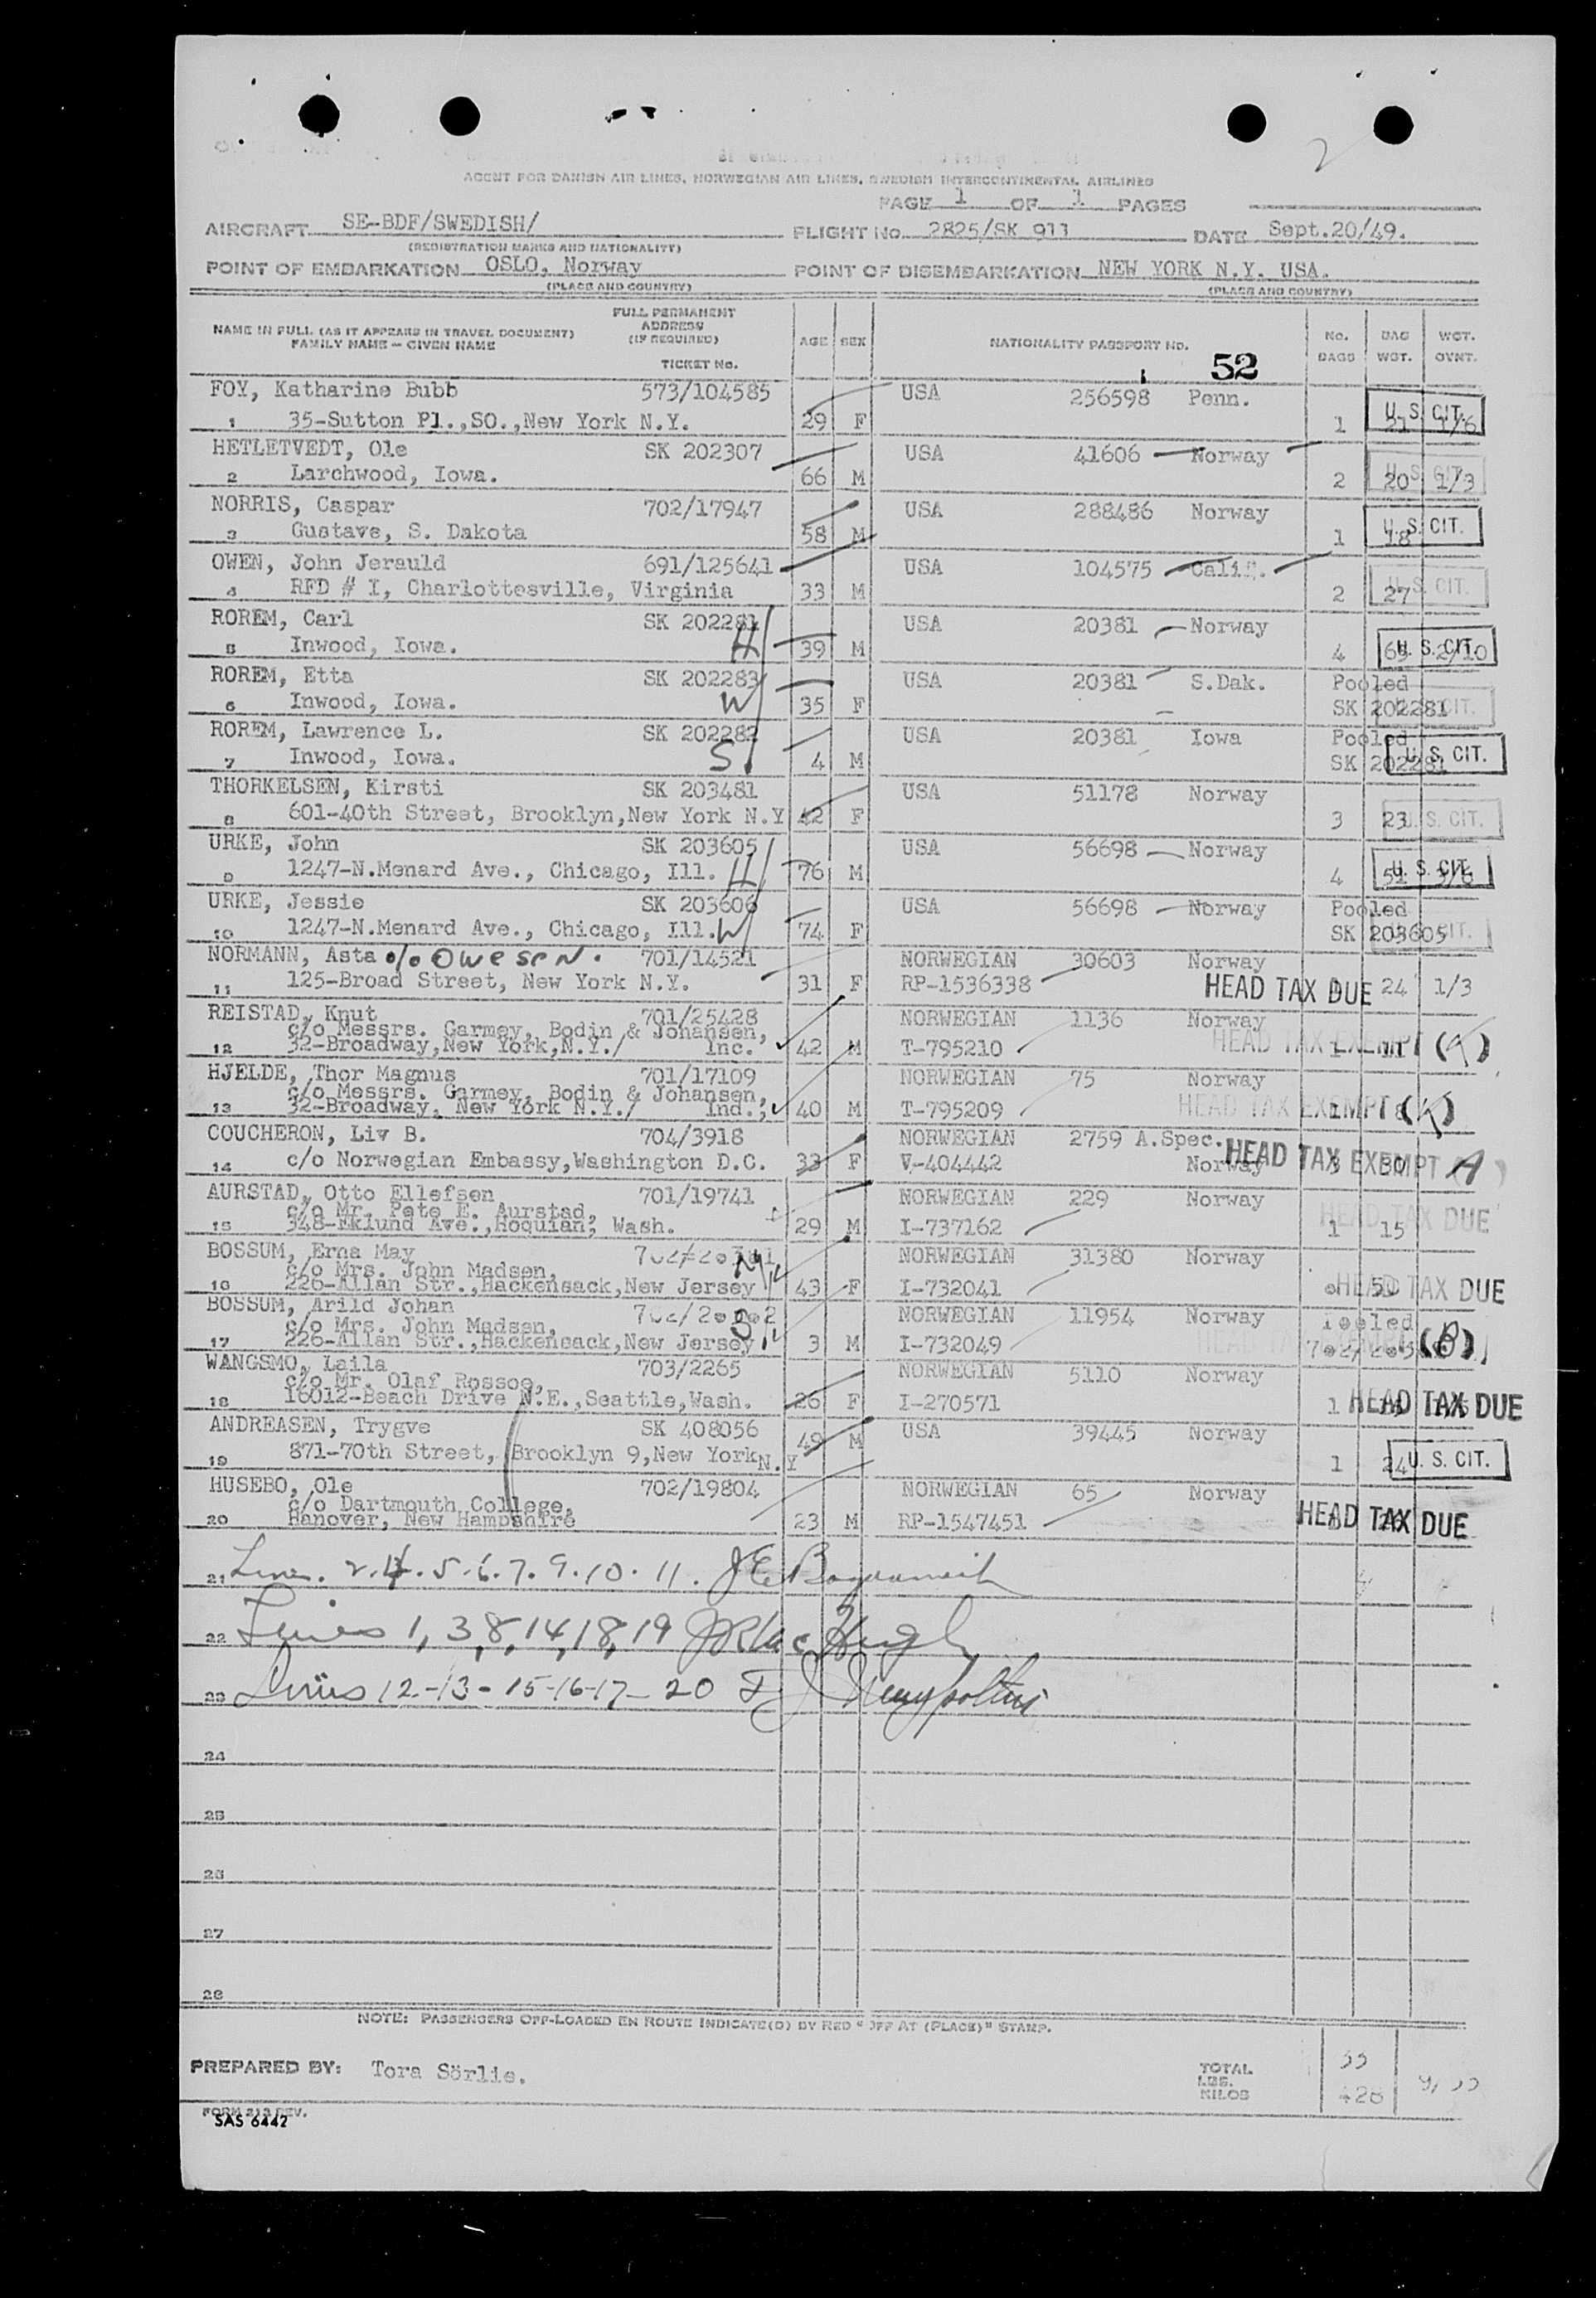 2
AGENT FOR DANISH AIR LINES, NORWEGIAN AIR LINES, SWEDISH INTERCONTINENTAL AIRLINES
PAGE 1 OF 1 PAGES
AIRCRAFT SE-BDF/SWEDISH/ FLIGHT No. 2825/SK 911 DATE Sept.20/49.
(REGISTRATION MARKS AND NATIONALITY)
POINT OF EMBARKATION OSLO, Norway POINT OF DISEMBARKATION NEW YORK N.Y. USA.
(PLACE AND COUNTRY) (PLACE AND COUNTRY)
NAME IN FULL (AS IT APPEARS IN TRAVEL DOCUMENT) FAMILY NAME - GIVEN NAME
FULL PERMANENT ADDRESS (IF REQUIRED) TICKET No.
AGE SEX NATIONALITY PASSPORT NO. No. BAGS BAG WGT. WGT. OVNT.
52
FOY, Katharine Bubb 573/104585 USA 256598 Penn.
1 35-Sutton Pl.,SO.,New York N.Y. 29 F 1 21 1/6 U. S. CIT.
HETLETVEDT, Ole SK 202307 USA 41606 Norway
2 Larchwood, Iowa. 66 M 2 20 1/3 U. S. CIT.
NORRIS, Caspar 702/17947 USA 288486 Norway
3 Gustave, S. Dakota 58 M 1 18 U. S. CIT.
OWEN, John Jerauld 691/125641 USA 104575 Calif.
4 RFD # I, Charlottesville, Virginia 33 M 2 27 U. S. CIT.
ROREM, Carl SK 202281 USA 20381 Norway
5 Inwood, Iowa. H 39 M 4 U. S. CIT.
ROREM, Etta SK 202283 USA 20381 S.Dak. Pooled
6 Inwood, Iowa. W 35 F SK 202281 U. S. CIT.
ROREM, Lawrence L. SK 202282 USA 20381 Iowa Pooled
7 Inwood, Iowa. S 4 M SK 202281 U. S. CIT.
THORKELSEN, Kirsti SK 203481 USA 51178 Norway
8 601-40th Street, Brooklyn,New York N.Y 42 F 3 23 U. S. CIT.
URKE, John SK 203605 USA 56698 Norway
9 1247-N.Menard Ave., Chicago, Ill. H 76 M 4 51 U. S. CIT.
URKE, Jessie SK 203606 USA 56698 Norway Pooled
10 1247-N.Menard Ave., Chicago, Ill. W 74 F SK 203605 U. S. CIT.
NORMANN, Asta c/o Owesen. 701/14521 NORWEGIAN 30603 Norway
11 125-Broad Street, New York N.Y. 31 F RP-1536338 HEAD TAX DUE 24 1/3
REISTAD, Knut 701/25428 NORWEGIAN 1136 Norway
c/o Messrs. Garmey, Bodin & Johansen,
12 32-Broadway,New York,N.Y./ Inc. 42 M T-795210 HEAD TAX EXEMPT
HJELDE, Thor Magnus 701/17109 NORWEGIAN 75 Norway
c/o Messrs. Garmey, Bodin & Johansen,
13 32-Broadway, New York N.Y./ Ind., 40 M T-795209 HEAD TAX EXEMPT
COUCHERON, Liv B. 704/3918 NORWEGIAN 2759 A.Spec.
14 c/o Norwegian Embassy,Washington D.C. 33 F V-404442 Norway HEAD TAX EXEMPT A
AURSTAD, Otto Ellefsen 701/19741 NORWEGIAN 229 Norway
c/o Mr. Pete E. Aurstad,
15 348-Eklund Ave.,Hoquian; Wash. 29 M I-737162 1 15 HEAD TAX DUE
BOSSUM, Erna May NORWEGIAN 31380 Norway
c/o Mrs. John Madsen,
16 226-Allan Str.,Hackensack,New Jersey 43 F I-732041 HEAD TAX DUE
BOSSUM, Arild Johan NORWEGIAN 11954 Norway Pooled
c/o Mrs. John Madsen, S
17 226-Allan Str.,Hackensack,New Jersey 3 M I-732049 (B)
WANGSMO, Laila 703/2265 NORWEGIAN 5110 Norway
c/o Mr. Olaf Rossoe,
18 16012-Beach Drive N.E.,Seattle,Wash. 26 F I-270571 1 HEAD TAX DUE
ANDREASEN, Trygve SK 408056 49 M USA 39445 Norway
19 871-70th Street, Brooklyn 9,New York N.Y 1 24 U. S. CIT.
HUSEBO, Ole 702/19804 NORWEGIAN 65 Norway
c/o Dartmouth College,
20 Hanover, New Hampshire 23 M RP-1547451 HEAD TAX DUE
21 Lines. 2.4.5.6.7.9.10.11.
22 Lines 1, 3, 8, 14, 18, 19
23 Lines 12-13-15-16-17-20
24
25
26
27
28
NOTE: PASSENGERS OFF-LOADED EN ROUTE INDICATE(D) BY RED "OFF AT (PLACE)" STAMP.
PREPARED BY: Tora Sörlie. TOTAL LBS. KILOS 33 428
FORM 213 REV.
SAS 6442